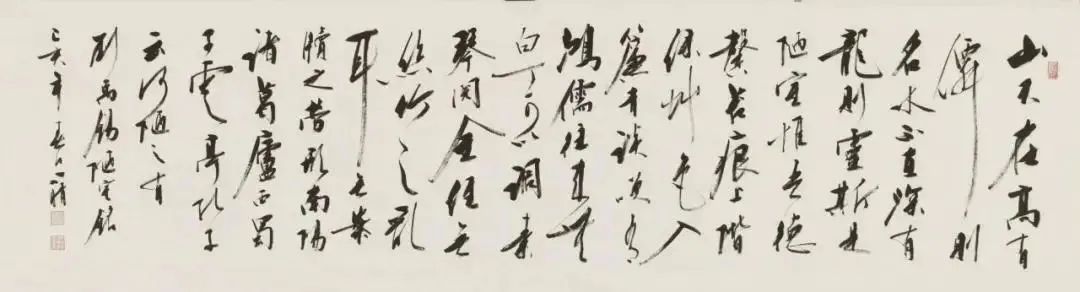 山不在高有
僊則
名水不在深有
龍則靈斯是
陋室惟吾德
馨苔痕上階
緑艸色入
簾青談笑有
鴻儒往來無
白丁可以調素
琴閱金經無
絲竹之亂
耳無案
牘之勞形南陽
諸葛廬西蜀
子雲亭孔子
云何陋之有
劉禹錫陋室銘
己亥年春